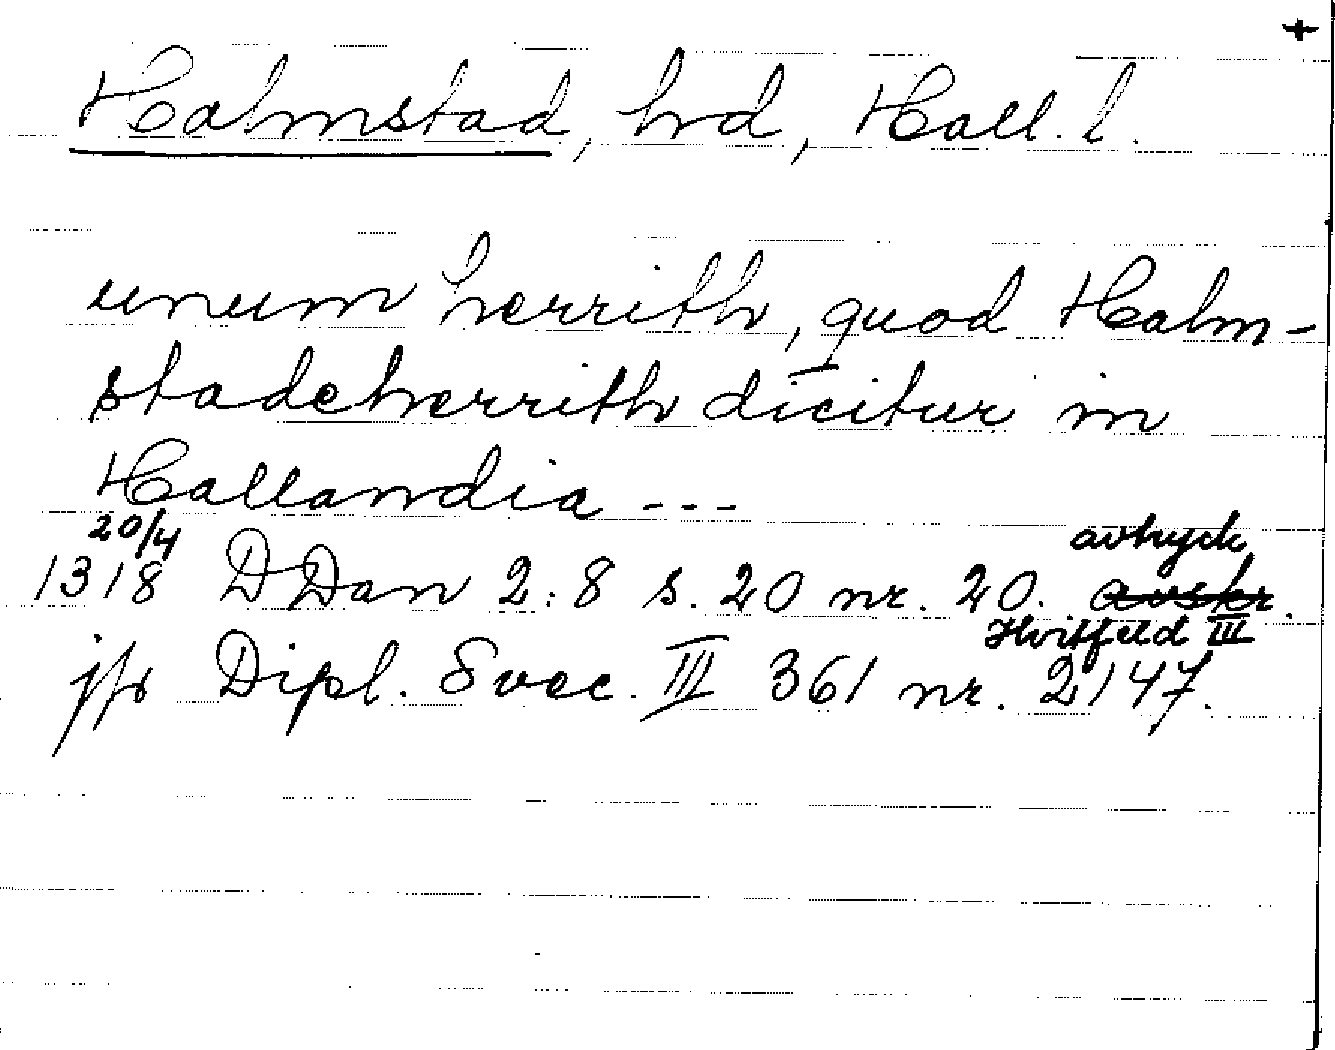 +
Halmstad, hd, Hall. l.
unum herrith, quod Halm-
stadeherrith dicitur in
Hallandia ---
20/4 avtryck
1318 DDan 2:8 s. 20 nr. 20. avskr.
Hvitfeld III
jfr Dipl. Svec. III 361 nr. 2147.